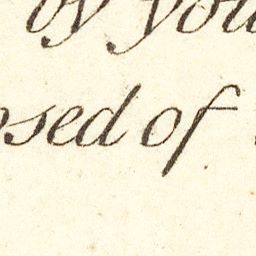 by you
osed of